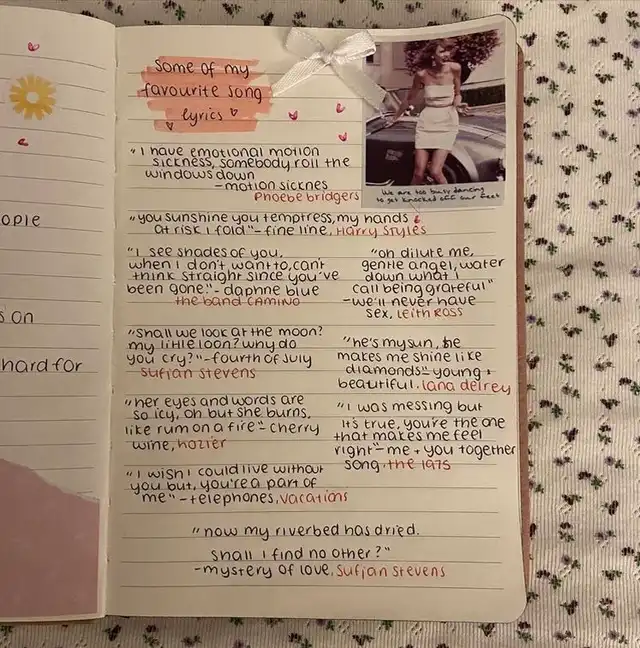 opie
s on
hard for
some of my
favourite song
lyrics
"I have emotional motion
sickness, somebody roll the
windows down
- motion sicknes
Phoebe bridgers
We are too busy dancing
to get knocked off our feet
"you sunshine you temptress, my hands
at risk I fold" - fine line, Harry Styles
"I see shades of you,
when I don't want to, can't
think straight since you've
been gone." - daphne blue
the band CAMINO
"oh dilute me,
gentle angel, water
down what I
call being grateful"
- we'll never have
sex, Leith Ross
"Shall we look at the moon?
my little loon? why do
you cry?" - fourth of July
Sufjan Stevens
"he's my sun, he
makes me shine like
diamonds" - young +
beautiful. lana delrey
"her eyes and words are
so icy, oh but she burns,
like rum on a fire" - Cherry
wine, hozier
"I was messing but
it's true, you're the one
that makes me feel
right" - me + you together
song, the 1975
"I wish I could live without
you but, you're a part of
me" - telephones, vacations
"now my riverbed has dried.
Shall I find no other?"
- mystery of love. Sufjan Stevens